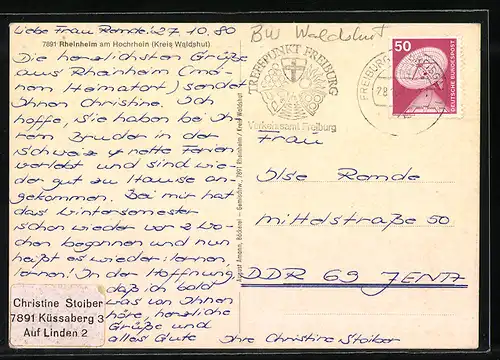 Liebe Frau Romde! 27.10.80
7891 Rheinheim am Hochrhein (Kreis Waldshut)
Die herzlichsten Grüße
aus Rheinheim (mei-
nem Heimatort) sendet
Ihnen Christine. Ich
hoffe, Sie haben bei Ih-
rem Bruder in der
Schweiz nette Ferien
verlebt und sind wie-
der gut zu Hause an-
gekommen. Bei mir hat
das Wintersemester
schon wieder vor 2 Wo-
chen begonnen und nun
heißt es wieder: lernen,
lernen! In der Hoffnung,
daß ich bald
was von Ihnen
höre, herzliche
Grüße und
alles Gute Ihre Christine Stoiber
Christine Stoiber
7891 Küssaberg 3
Auf Linden 2
August Amann, Bäckerei - Gemischtw., 7891 Rheinheim / Kreis Waldshut
BW Waldshut
TREFFPUNKT FREIBURG
Verkehrsamt Freiburg
FREIBURG
50
DEUTSCHE BUNDESPOST
Frau
Ilse Romde
Mittelstraße 50
DDR 69 JENA